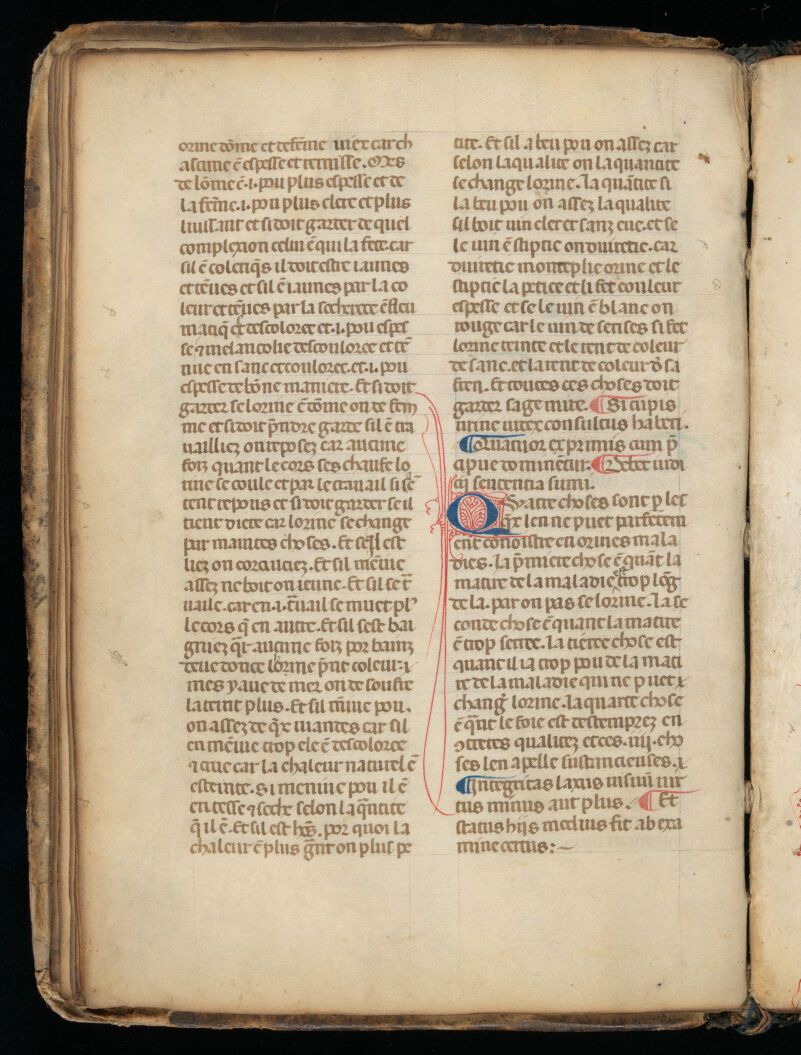 orine dōme et de fēme viez car ch
ascune ē espesse et remisse. Mes
de lōme ē .i. pou plus espesse et de
la fēme .i. pou plus clere et plus
luisant et si doit garder de quel
complexion celui ē qui la fete. car
sil ē coleriq̄s il doit estre iaunes
et tēues et sil ē iaunes par la co
leur et tēues par la secherece ē fleu
matiq̄ et descoloree et .i. pou espes
se ⁊ melancolie descouloree et tē
nue en sanc et couloree. et .i. pou
espesse de bōne maniere. Et si doit
garder se lorine ē dōme on de fem
me et si doit p̄ndre garde sil ē tra
uailliez on reposez car aucune
foiz quant le cors ses chaufe lo
rine se coule et par le trauail si se
tent repons et si doit garder se il
tient diete car lorine se change
par maintes choses. Et seil est
liez on corouciez. Et sil meniue
assez ne boit on ieune. Et sil se t̄
uaille. car en .i. t̄uail se muet pl⁹
le cors q̄ en autre. Et sil sest bai
gniez q̄r aucune foiz por bainz
deue donce lorine p̄nt coleur .i
mes yaue de mer on de soufre
la teint plus. Et sil m̄iue pou.
on assez de q̄x uiandes car sil
en mēiue trop ele ē descoloree
⁊ crue car la chaleur naturel ē
esteinte. Si meniue pou il ē
en tesse ⁊ seche selon la q̄ntite
q̄ il ē. Et sil est hōs. por quoi la
chaleur ē plus ḡnt on plus pe
tite. Et sil a beu pou on assez car
selon la qualite on la quantite
se change lorine. La quātite si
la beu pou on assez la qualite
sil boit uin cler et sanz eue. et se
le uin ē stiptic on diuretic. car
diuretic monteplie orine et le
stiptic la petice et li fet couleur
espesse et se le uin ē blanc on
rouge car le uin de senses si fet
lorine teinte et le rent de coleur
de sanc. et la rent de coleur d̄ sa
fren. Et toutes ces choses doit
garder sagemnte. ¶ Si cupis
urine iudex consultus haberi.
¶ Quatuor ex primis cum p̄
cipue dominētur. ¶ Debet uidi
q̄ sentencia sumi.
Qvatre choses sont p̄ les
q̄x len ne puet parfetem
ent conoistre en orines mala
dies. La p̄miere chose ē quāt la
matire de la maladie ē trop lōg
de la. par on pas se lorine. La se
conde chose ē quant la matire
ē trop serree. La tierce chose est
quant il ia trop pou de la mati
re de la maladie qui ne puet x
chanḡ lorine. La quarte chose
ē q̄nt le foie est destemprez en
ꝯtreres qualitez et ces .iiij. cho
ses len apelle sustancieuses. x
¶ Integritas laxus uisum uir
tus minus aut plus. ¶ Et
status hijs medius fit ab exa
mine certus:~